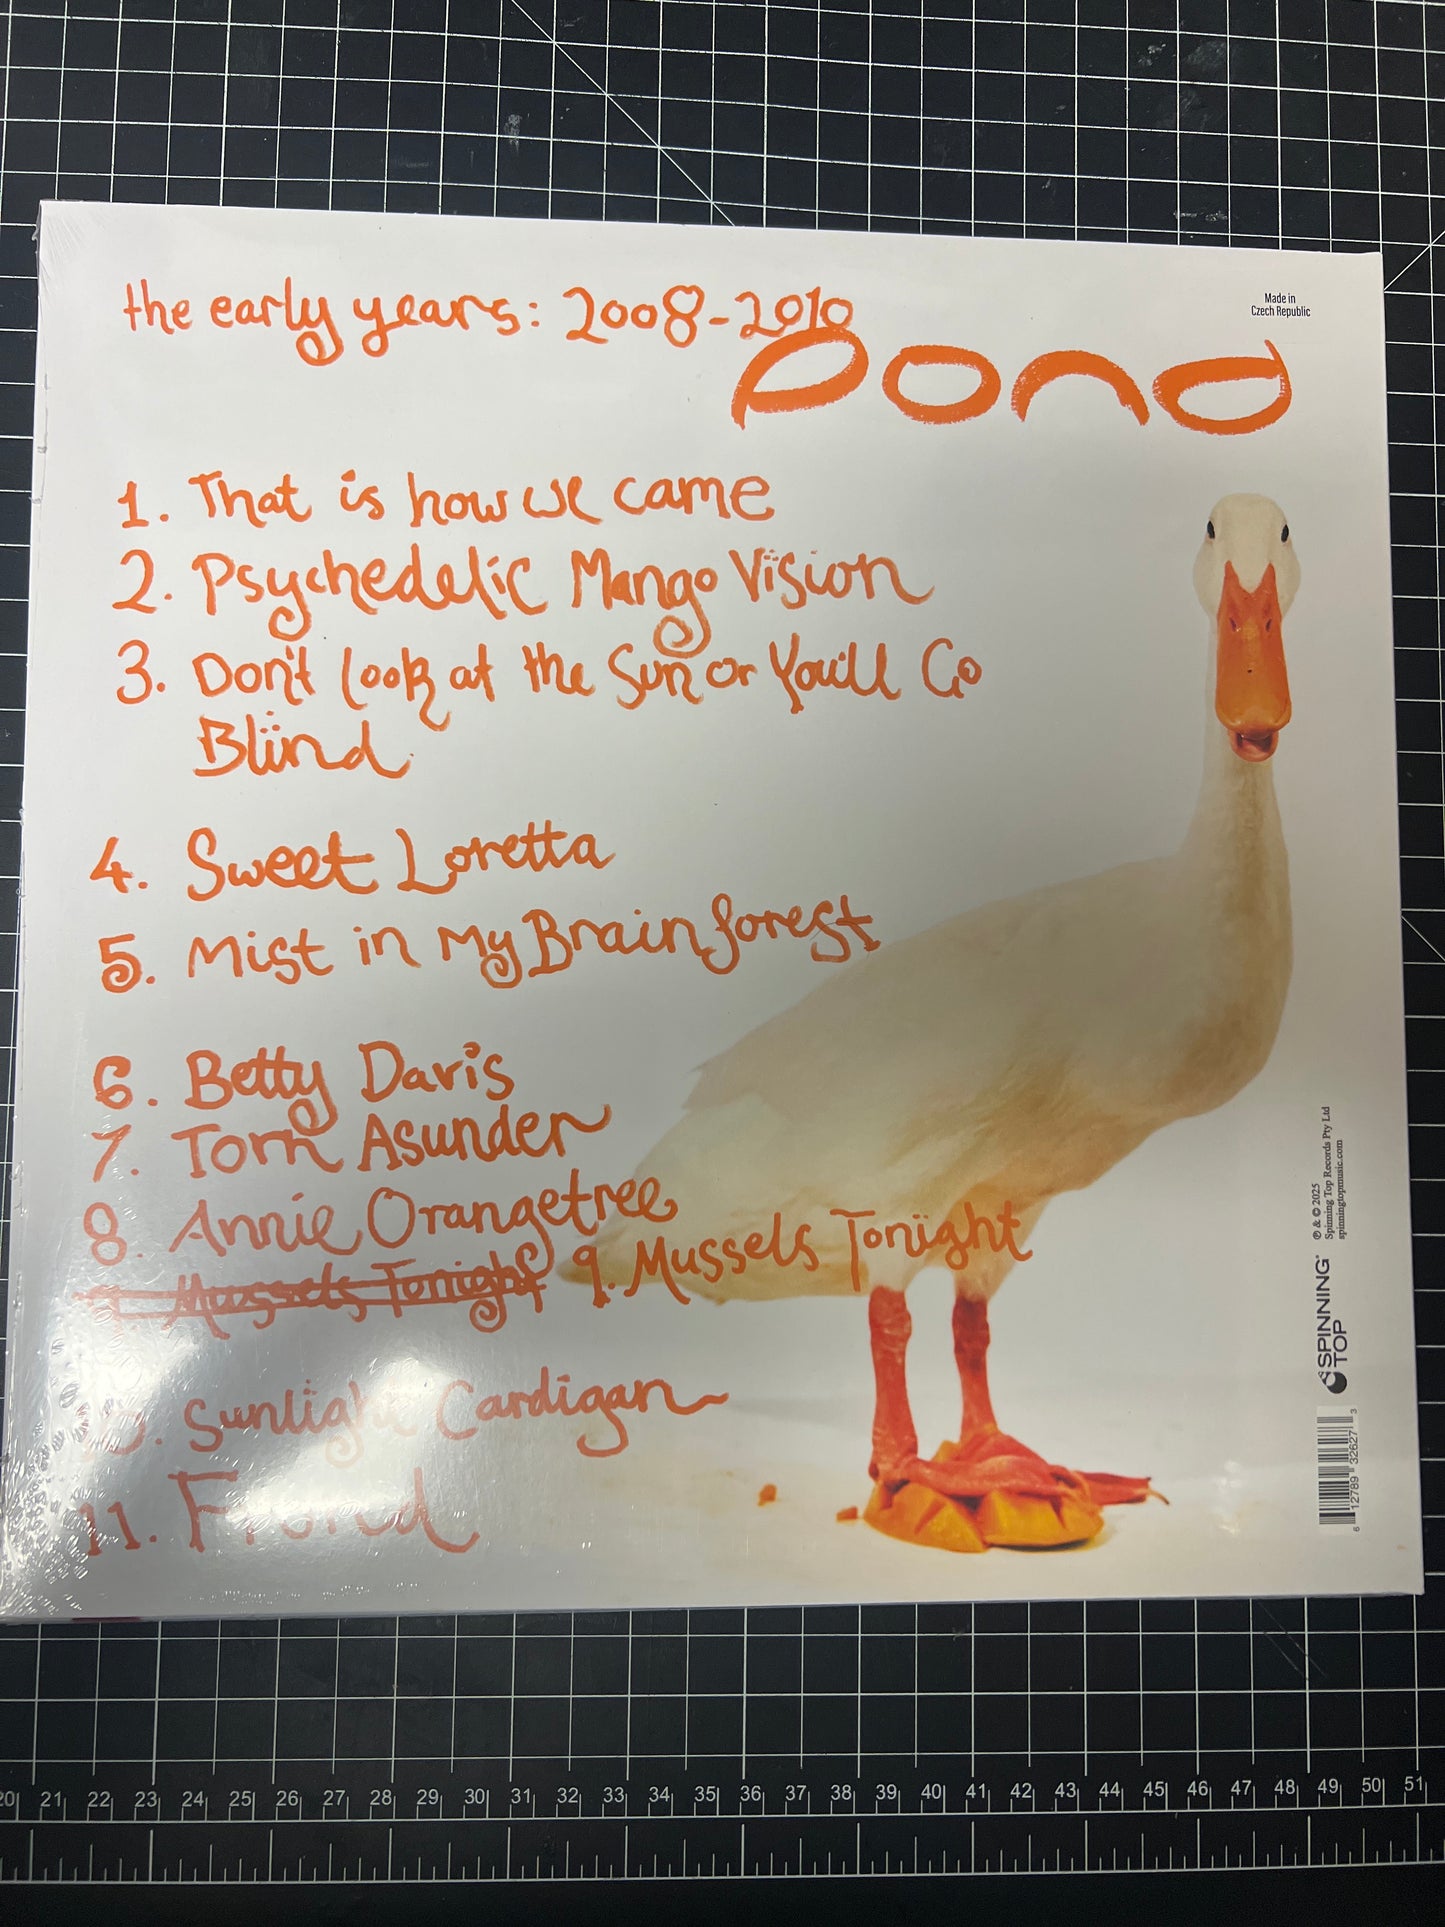 the early years: 2008-2010
Made in
Czech Republic
Pond
1. That is how we came
2. Psychedelic Mango Vision
3. Don't look at the Sun or You'll Go
Blind
4. Sweet Loretta
5. Mist in my Brain forest
6. Betty Davis
7. Torn Asunder
8. Annie Orangetree
9. Mussels Tonight
9. Mussels Tonight
10. Sunlight Cardigan
11. Frond
℗ & © 2025
Spinning Top Records Pty Ltd
spinningtopmusic.com
SPINNING
TOP
6 12789 32627 3
20 21 22 23 24 25 26 27 28 29 30 31 32 33 34 35 36 37 38 39 40 41 42 43 44 45 46 47 48 49 50 51